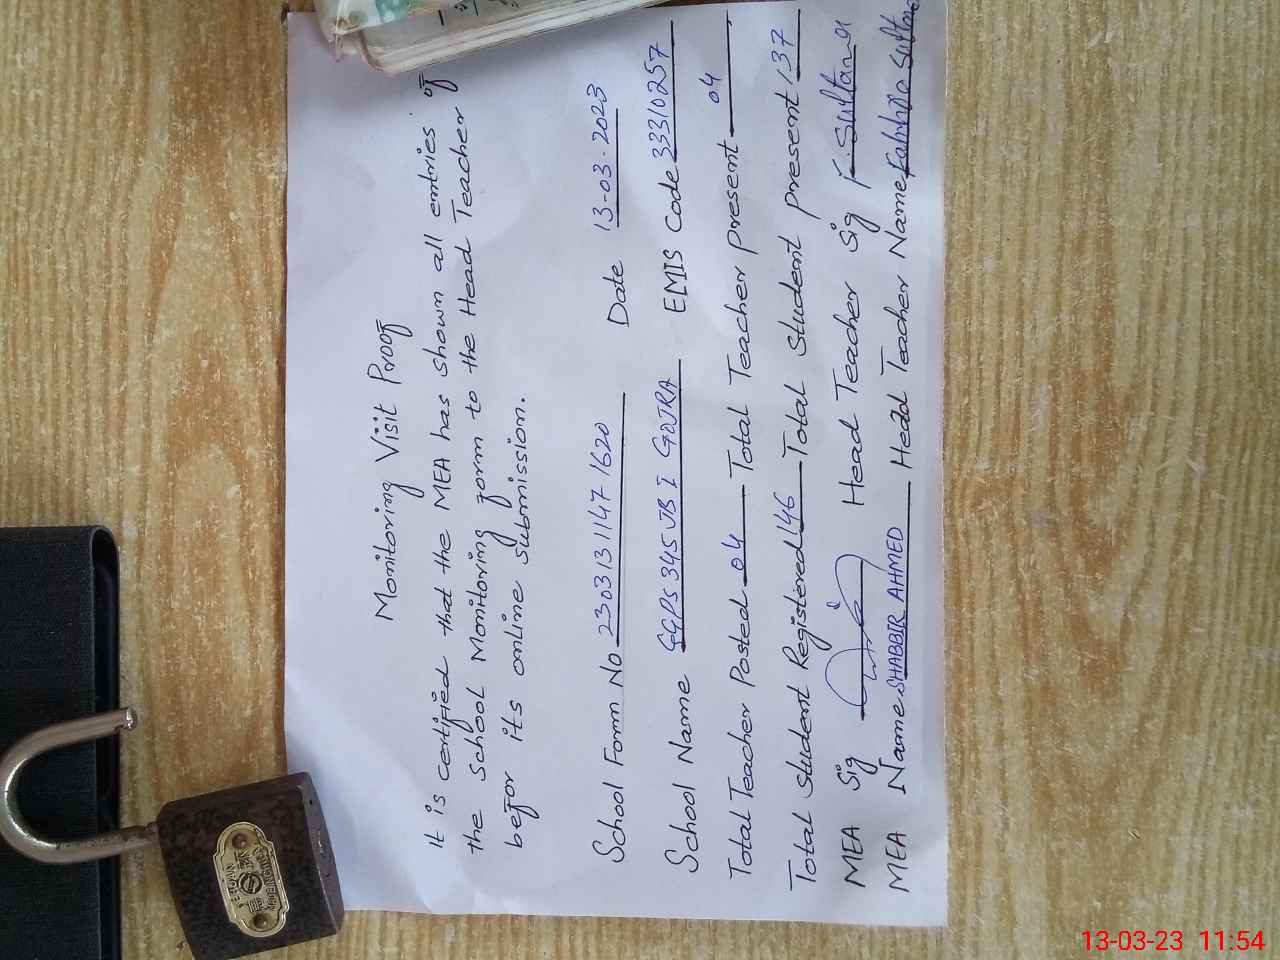 Monitoring Visit Proof
It is certified that the MEA has shown all entries of
the School Monitoring form to the Head Teacher
befor its online submission.
School Form No 23031311471620 Date 13-03-2023
School Name GGPS 345 JB I GOJRA EMIS Code 33310257
Total Teacher Posted 04 Total Teacher present 04
Total Student Registered 146 Total Student present 137
MEA Sig Head Teacher Sig F Sultana
MEA Name SHABBIR AHMED Head Teacher Name Sultana
13-03-23 11:54